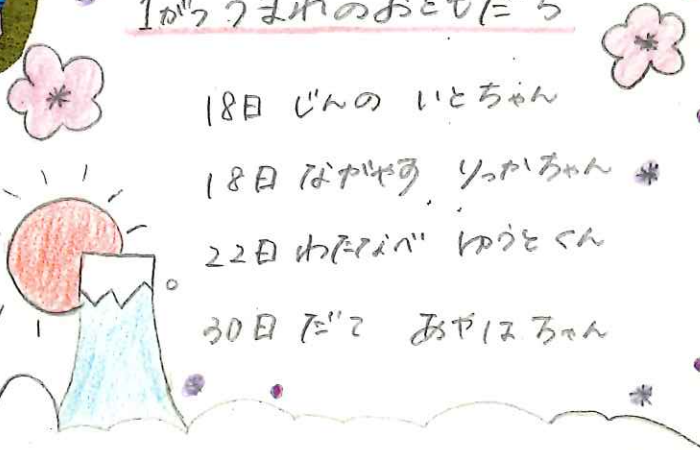 1がつうまれのおともだち
18日 じんの いとちゃん
18日 ながやす りっかちゃん
22日 わたなべ ゆうとくん
30日 だて あやはちゃん